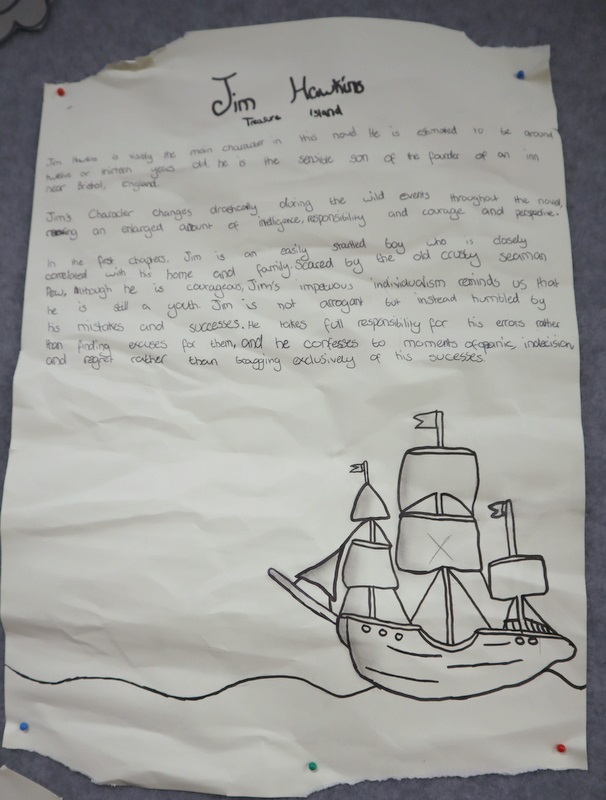 Jim Hawkins
Treasure Island
Jim Hawkins is the main character in this novel He is estimated to be around
twelve or thirteen years old. he is the sensible son of the founder of an inn
near Bristol, England.
Jim's Character changes drastically during the wild events throughout the novel,
an enlarged amount of intelligence, Responsibility and courage and perspective.
In the first chapters. Jim is an easily startled boy who is closely
correlated with his home and family. Scared by the old crusty seaman
Pew, Although he is courageous, Jim's impetuous individualism reminds us that
he is still a youth. Jim is not arrogant but instead humbled by
his mistakes and successes. He takes full responsibility for his errors rather
than finding excuses for them, and he confesses to moments of panic, indecision,
and regret rather than bragging exclusively of his sucesses.
X